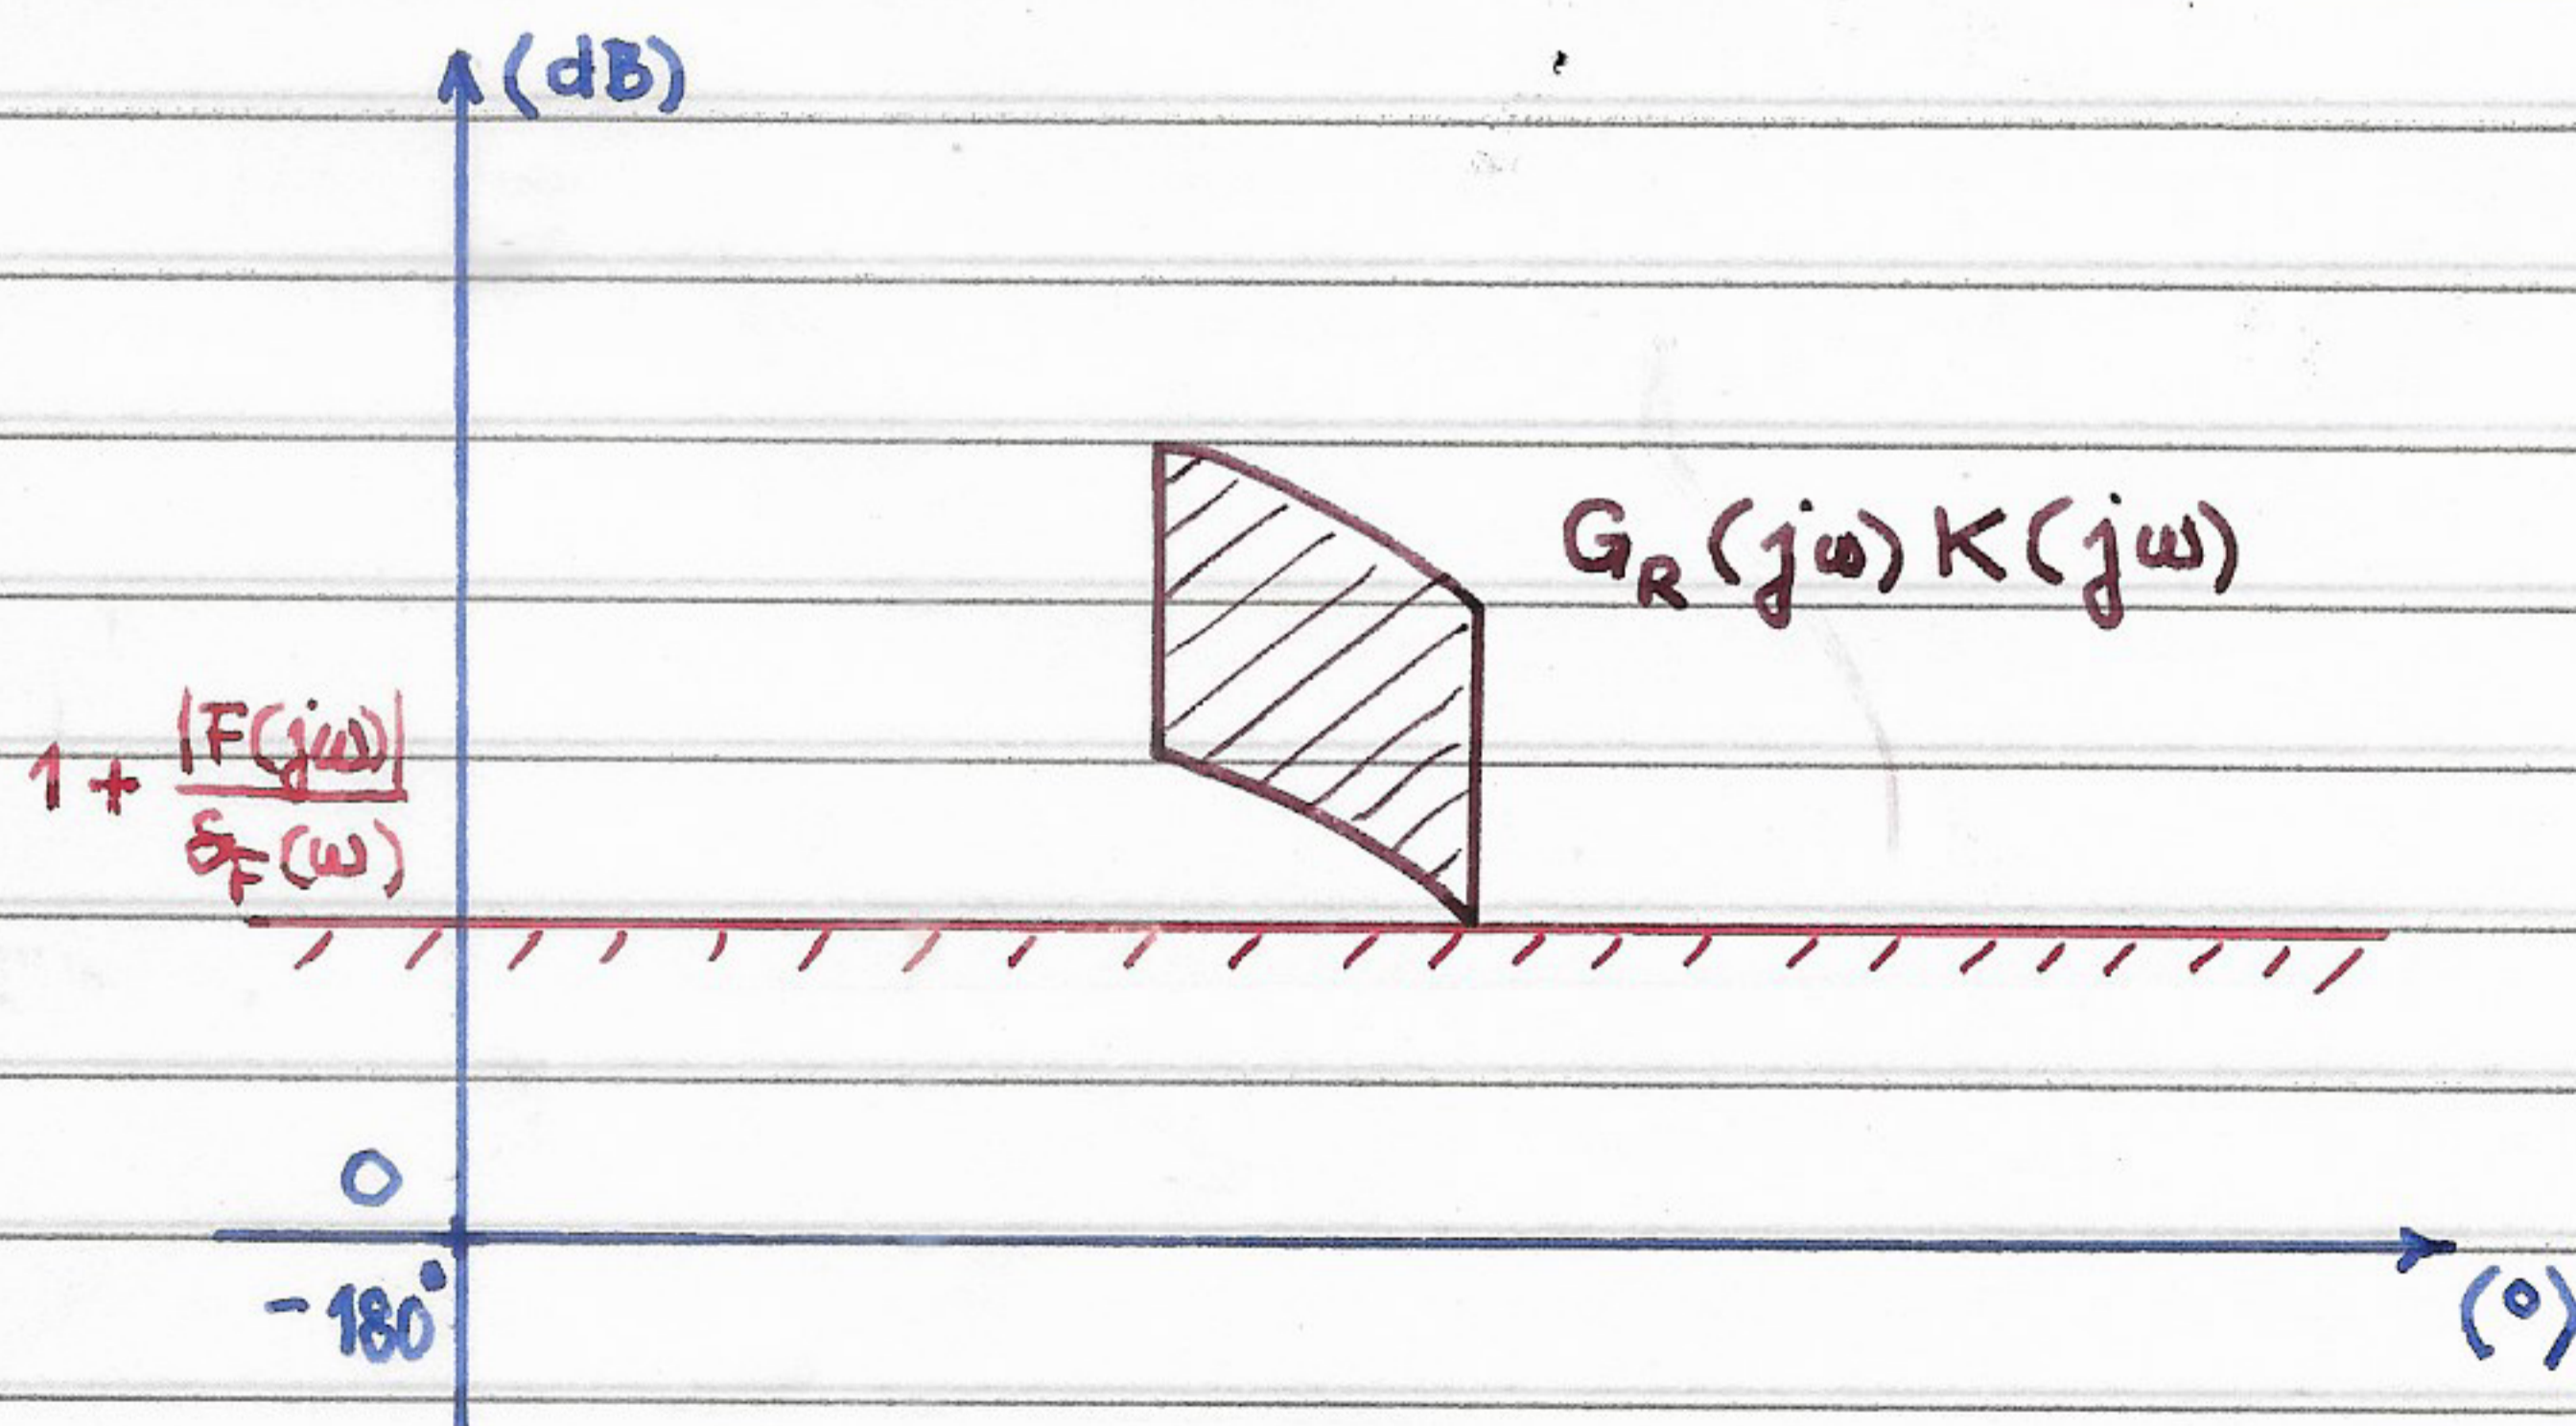 (dB)
G_R(jω)K(jω)
1 + |F(jω)| / δ_F(ω)
0
-180°
(°)